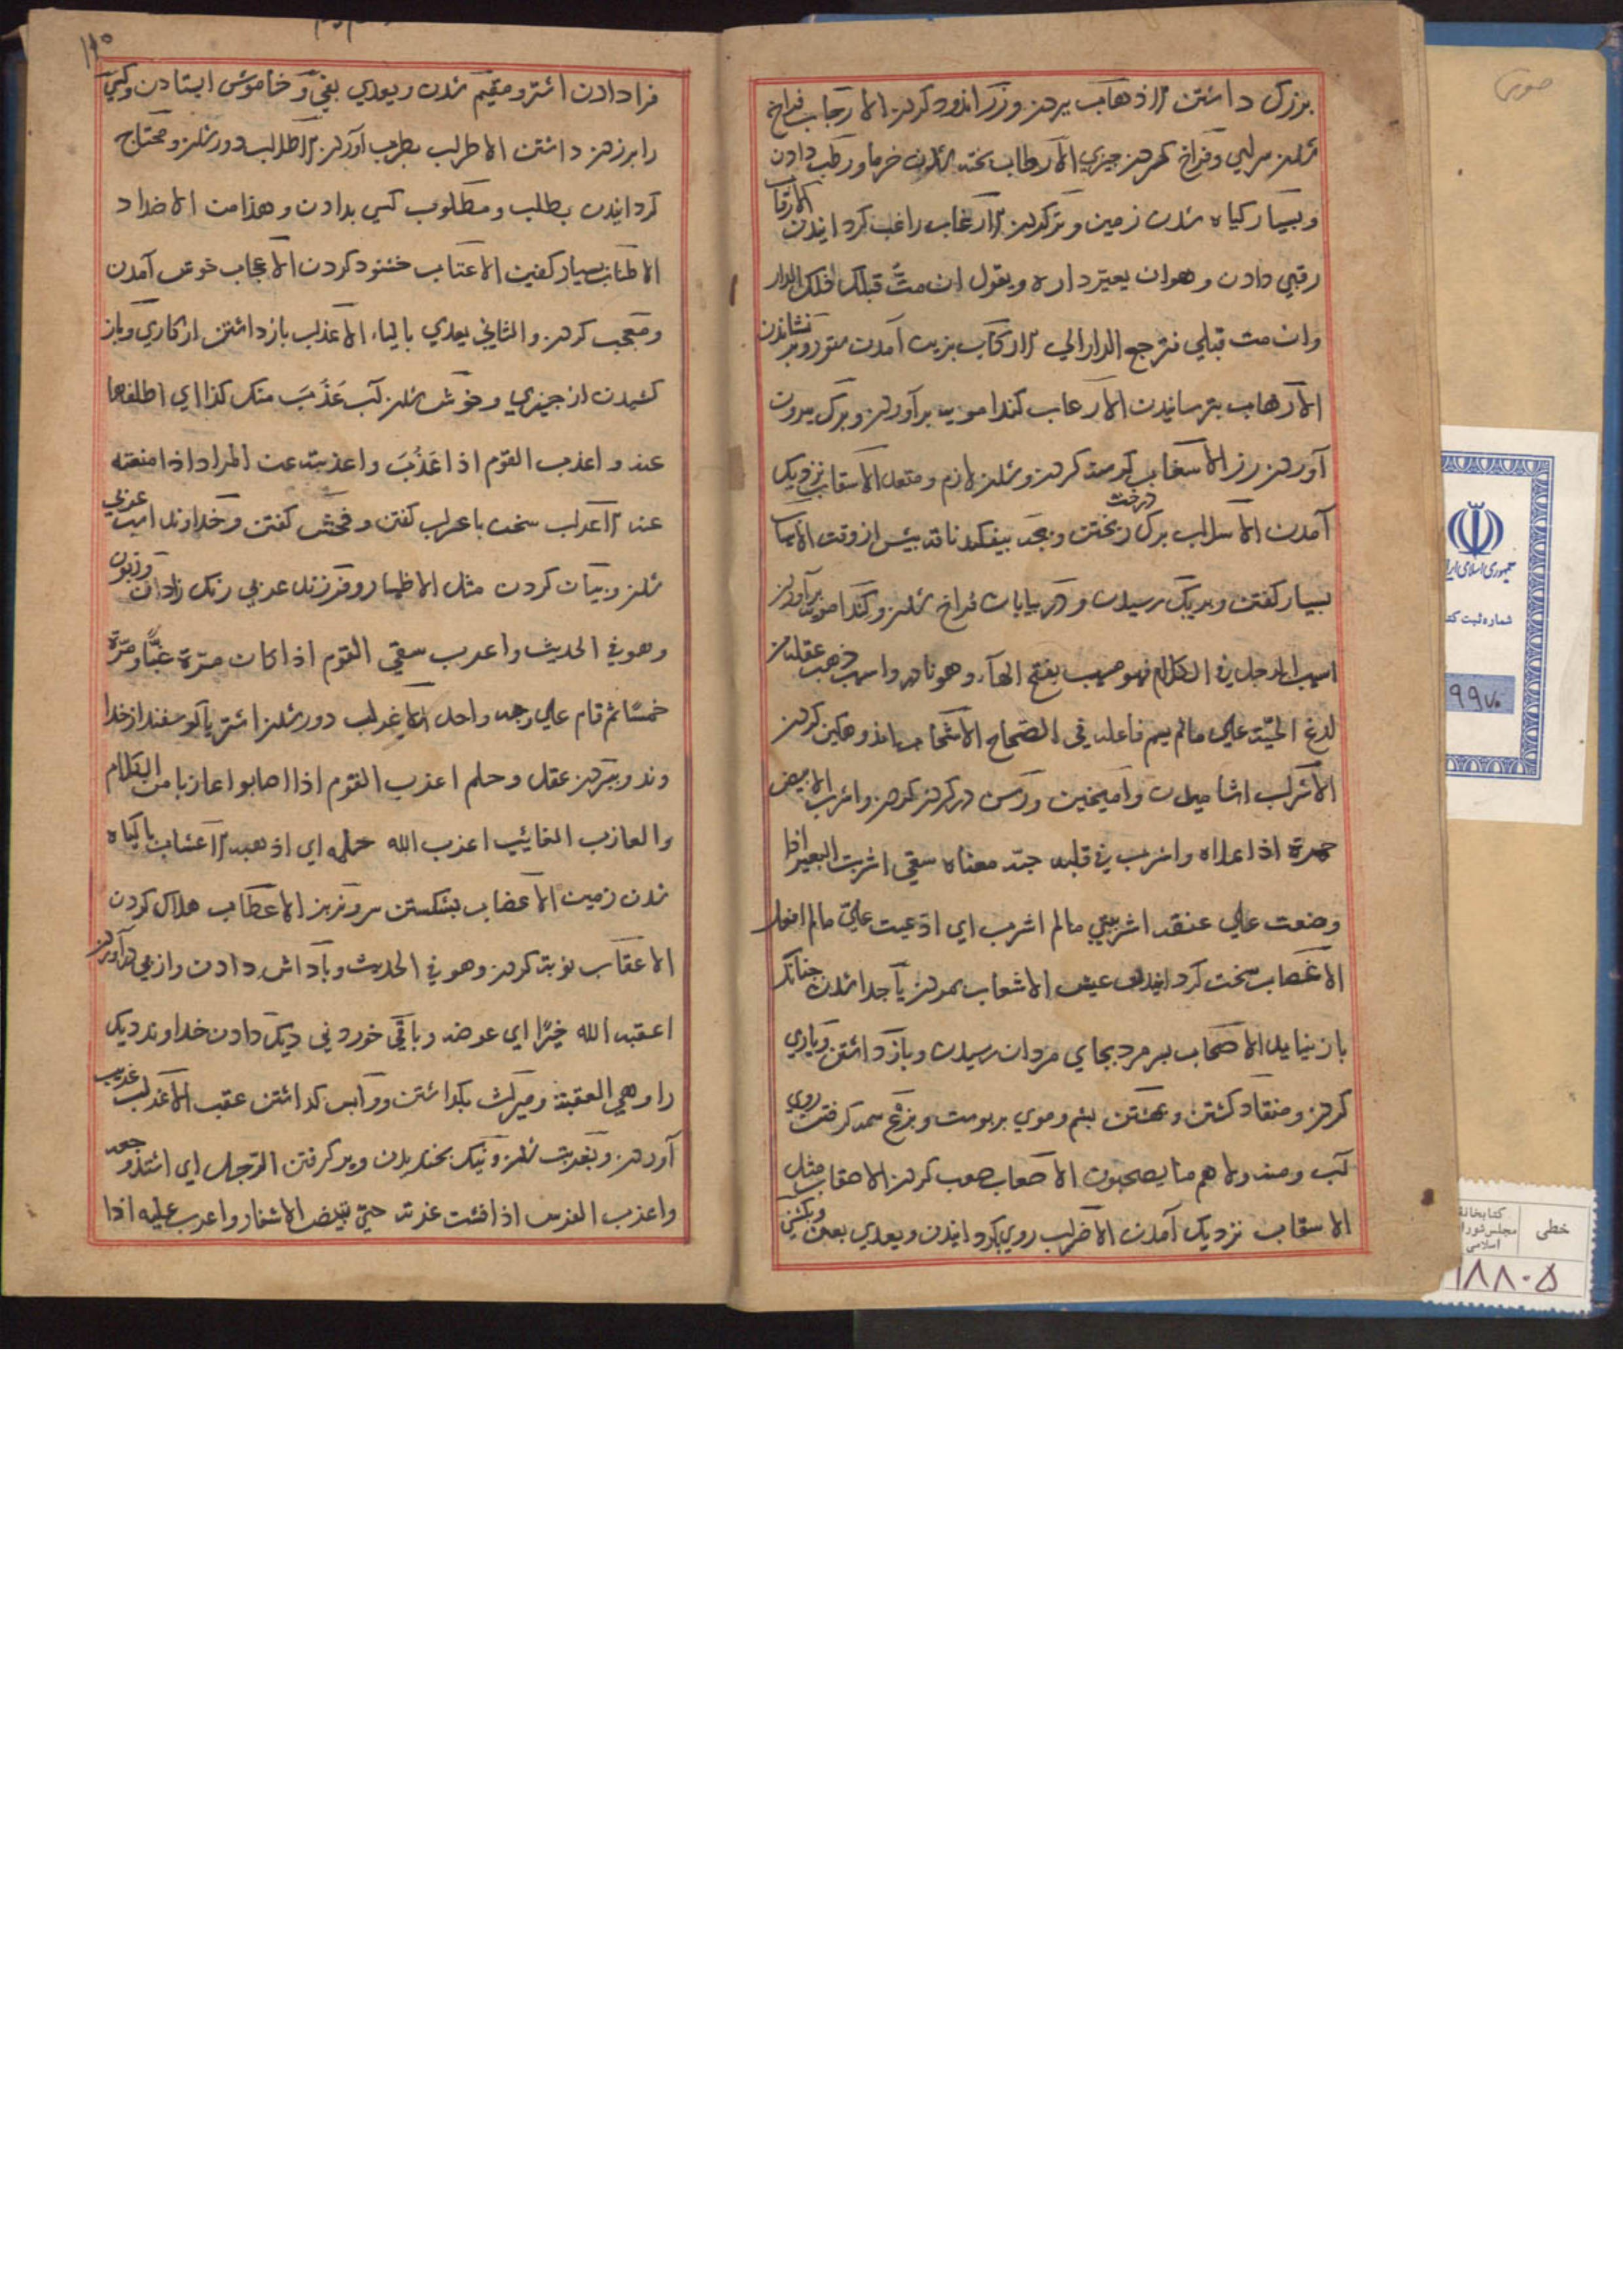 بزرک داشتن الاذهاب بردن وزر اندود کردن الارحاب فراخ
شدن سرای وفراخ کردن چیزی الارطاب پخته شدن خرما ورطب دادن
وبسیار کیاه شدن زمین وتر کردن الارغاب راغب کردانیدن الارقاب
رقبی دادن وهو ان یعیر داره ویقول ان مت قبلک فلک الدار
وان مت قبلی فترجع الدار الی الارکاب بزین آمدن ستور وبر نشاندن
الارهاب بترسانیدن الازعاب کندا مویه برآوردن وبرک بیرون
آوردن رز الاسغاب کرسنه کردن وشدن لازم ومتعد الاسقاب نزدیک
آمدن الاسلاب برک ریختن درخت وبچه بیفکند ناقه پیش از وقت الاسهاب
بسیار کفتن وبریک رسیدن ودر بیابان فراخ شدن وکندا مویه برآوردن
اسهب الرجل فی الکلام فهو مسهب بفتح الهآء وهو نادر واسهب ذهب عقله من
لدغ الحیة علی مالم یسم فاعله فی الصحاح الاشجاب اندوهکین کردن
الاشراب اشامیدن وآمیختن ورسن در کردن کردن واشرب الابیض
حمرة اذا علاه واشرب فی قلبه حبه معناه سقی اشربت البعیر اذا
وضعت علی عنقه اشربتنی مالم اشرب ای ادعیت علی مالم افعل
الاعصاب سخت کردانیدن عیش الاشعاب بمردن یا جدا شدن چنانک
باز نیاید الاصحاب بر مرد بجای مردان رسیدن وباز داشتن ویاری
کردن ومنقاد کشتن وبهشتن پشم وموی بر پوست وبزغ سمه کرفتن روی
آب ومنه ولا هم منا یصحبون الاصعاب صعب کردن الاصقاب مثل
الاسقاب نزدیک آمدن الاضراب روی بکردانیدن ویعدی بعن وبکشنی
۱۱۰
فرا دادن اشتر ومقیم شدن ویعدی بفی وخاموش ایستادن وکسی
را برزدن داشتن الاطراب بطرب آوردن الاطلاب دور شدن ومحتاج
کردانیدن بطلب ومطلوب کسی بدادن وهذا من الاضداد
الاطناب بسیار کفتن الاعتاب خشنود کردن الاعجاب خوش آمدن
ومعجب کردن والثانی یعدی بالباء الاعذاب باز داشتن از کاری وباز
کشیدن از چیزی وخوش شدن آب عَذُبَ منک کذا ای اطلقها
عنه واعذب القوم اذا عَذُبَ واعذبته عن المراد اذا منعته
عنه الاعراب سخن باعراب کفتن وفحش کفتن وخداوند اسب عربی
شدن وبیان کردن مثل الاظهار وفرزند عربی رنک زادن وزبون
وهو فی الحدیث واعرب سقی القوم اذا کان مرّة غبًّا ومرّة
خمسًا ثم قام علی وجه واحد الاعزاب دور شدن اشتر یا کوسفند از خدا
وند وببردن عقل وحلم اعزب القوم اذا اصابوا عازبا من الکلام
والعازب الغائب اعزب الله حلمه ای اذهبه الاعشاب با کیاه
شدن زمین الاعضاب بشکستن سرو بز الاعطاب هلاک کردن
الاعقاب نوبت کردن وهو فی الحدیث وپاداش دادن واز پی درآوردن
اعقبه الله خیرًا ای عوضه وباقی خوردنی دیک دادن خداوند دیک
را وهی العقبة ومیراث بکذاشتن وواپس کذاشتن عقب الاغراب غریب
آوردن وبغربت شدن ونیک بخندیدن وپر کرفتن الرجل ای اشتد وجعه
واغرب الفرس اذا فشت غرته حتی تبیض الاشفار واغرب علیه اذا
جمهوری اسلامی ایران
شماره ثبت کتاب
۹۹۷۰
خطی
کتابخانه
مجلس شورای
اسلامی
۱۸۸۰۵